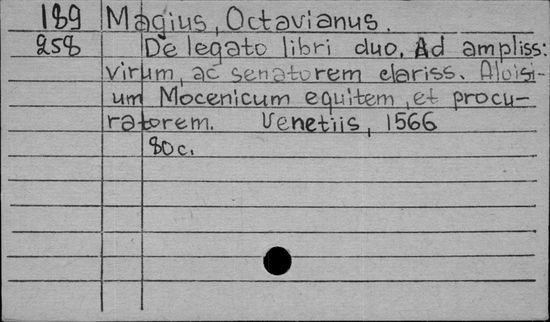 189 Magius, Octavianus.
258 De legato libri duo. Ad ampliss:
virum, ac senatorem clariss. Aloisi-
um Mocenicum equitem, et procu-
ratorem. Venetiis, 1566
80c.